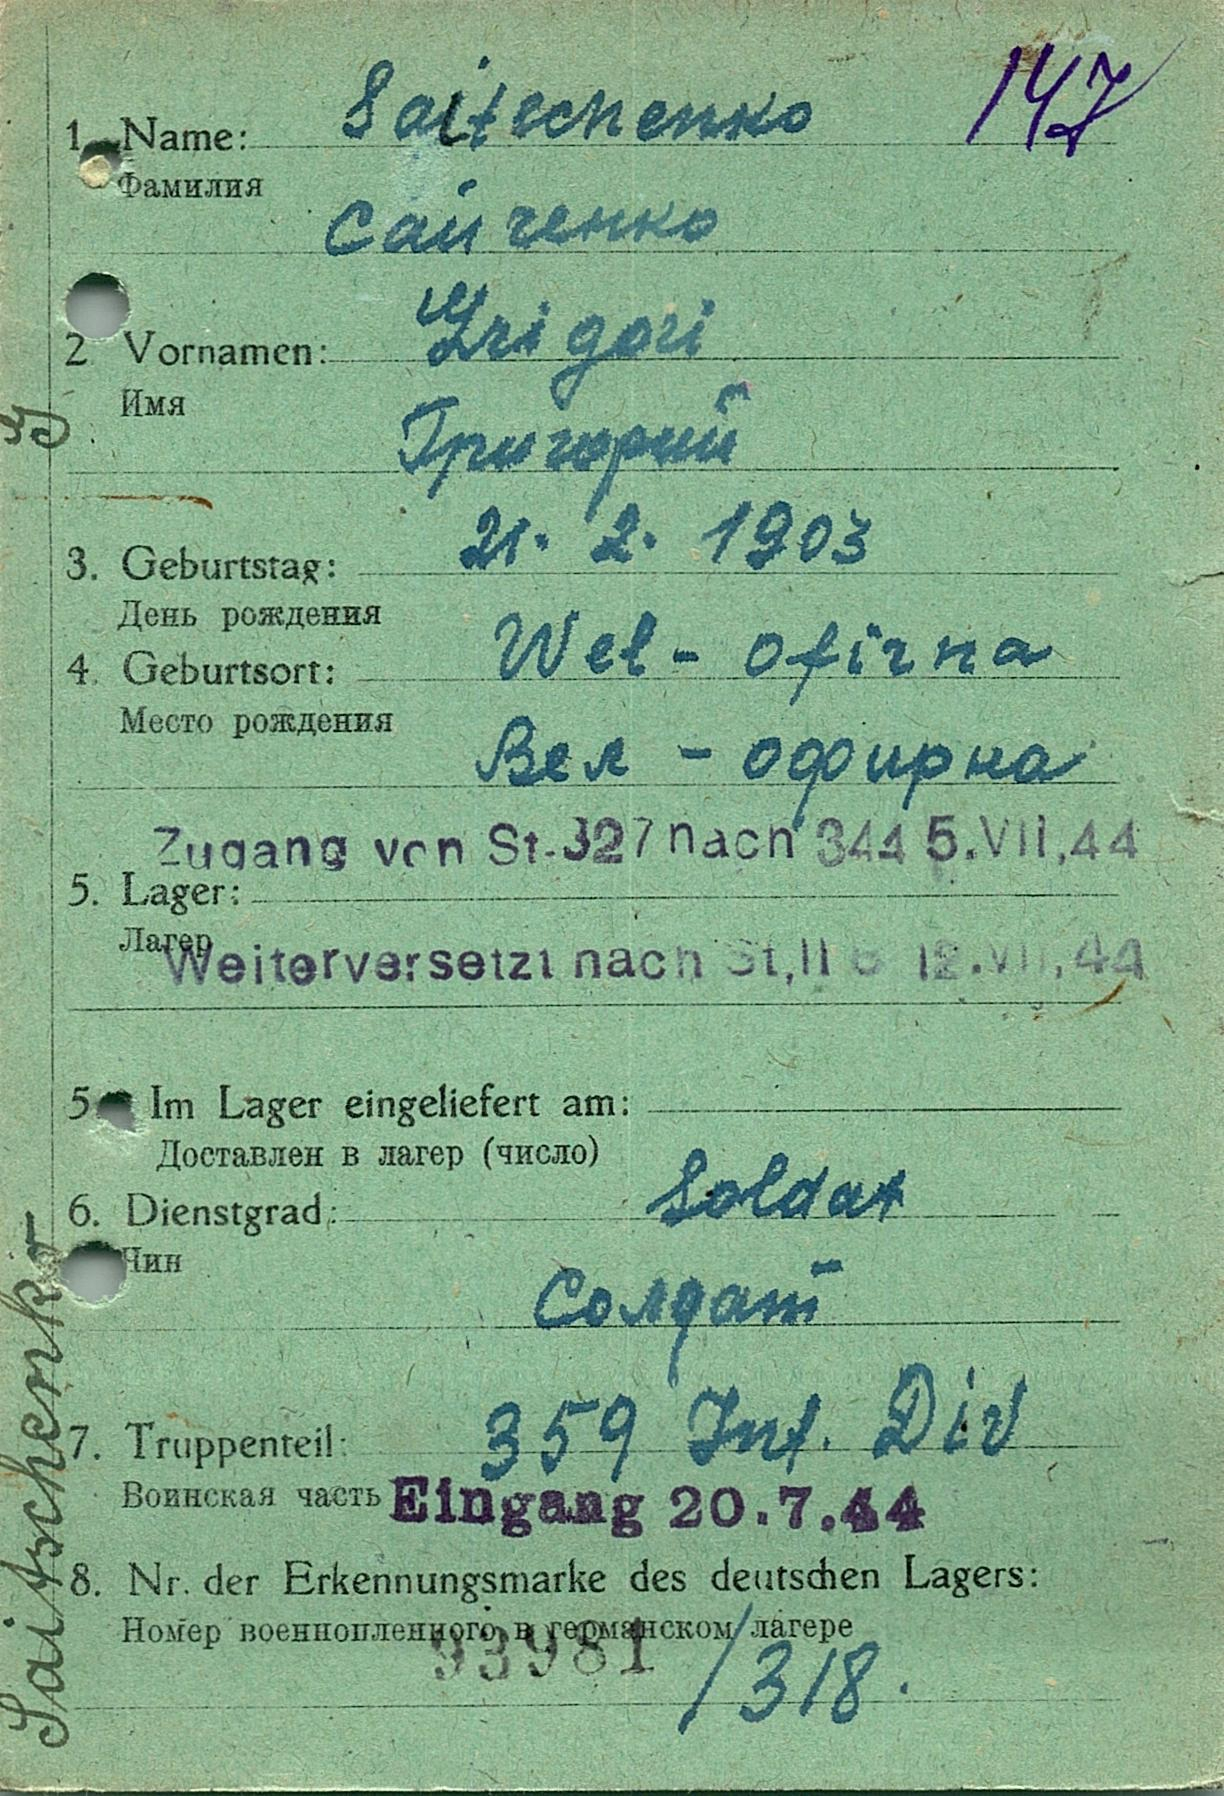 147
1. Name: Saitschenko
Фамилия
Сайченко
2 Vornamen: Grigori
Имя
Григорий
3. Geburtstag: 21. 2. 1903
День рождения
4. Geburtsort: Wel - ofirna
Место рождения
Вел - офирна
Zugang von St. 327 nach 344 5.VII,44
5. Lager:
Лагер
Weiterversetzt nach St,II 12.VII,44
5 Im Lager eingeliefert am:
Доставлен в лагер (число)
6. Dienstgrad: Soldat
Чин
Солдат
7. Truppenteil: 359 Inf. Div
Воинская часть Eingang 20.7.44
8. Nr. der Erkennungsmarke des deutschen Lagers:
Номер военнопленного в германском лагере
93981 /318.
Saitschenko